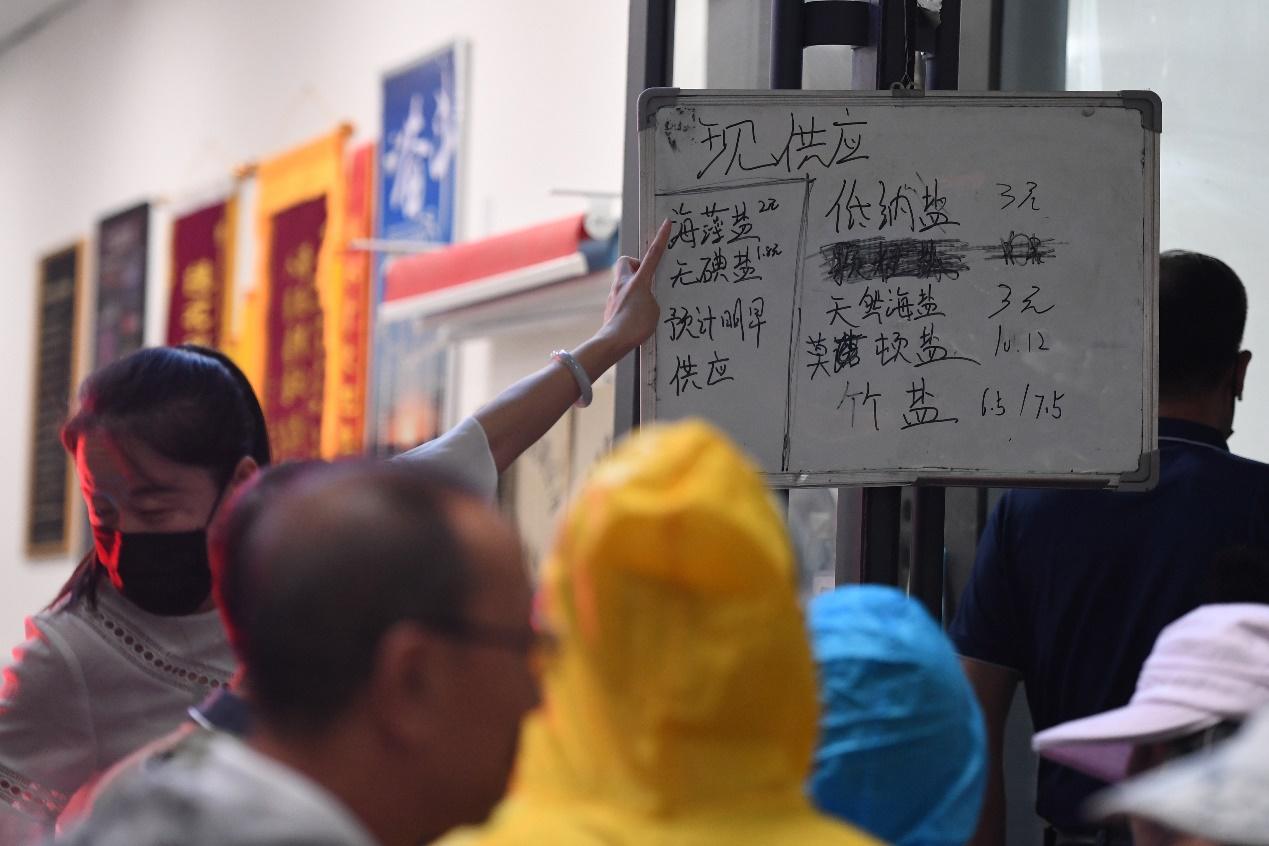 现供应
海藻盐 2元
无碘盐 1.8元
预计明早
供应
低纳盐 3元
天然海盐 3元
莫顿盐 10.12
竹盐 6.5/7.5